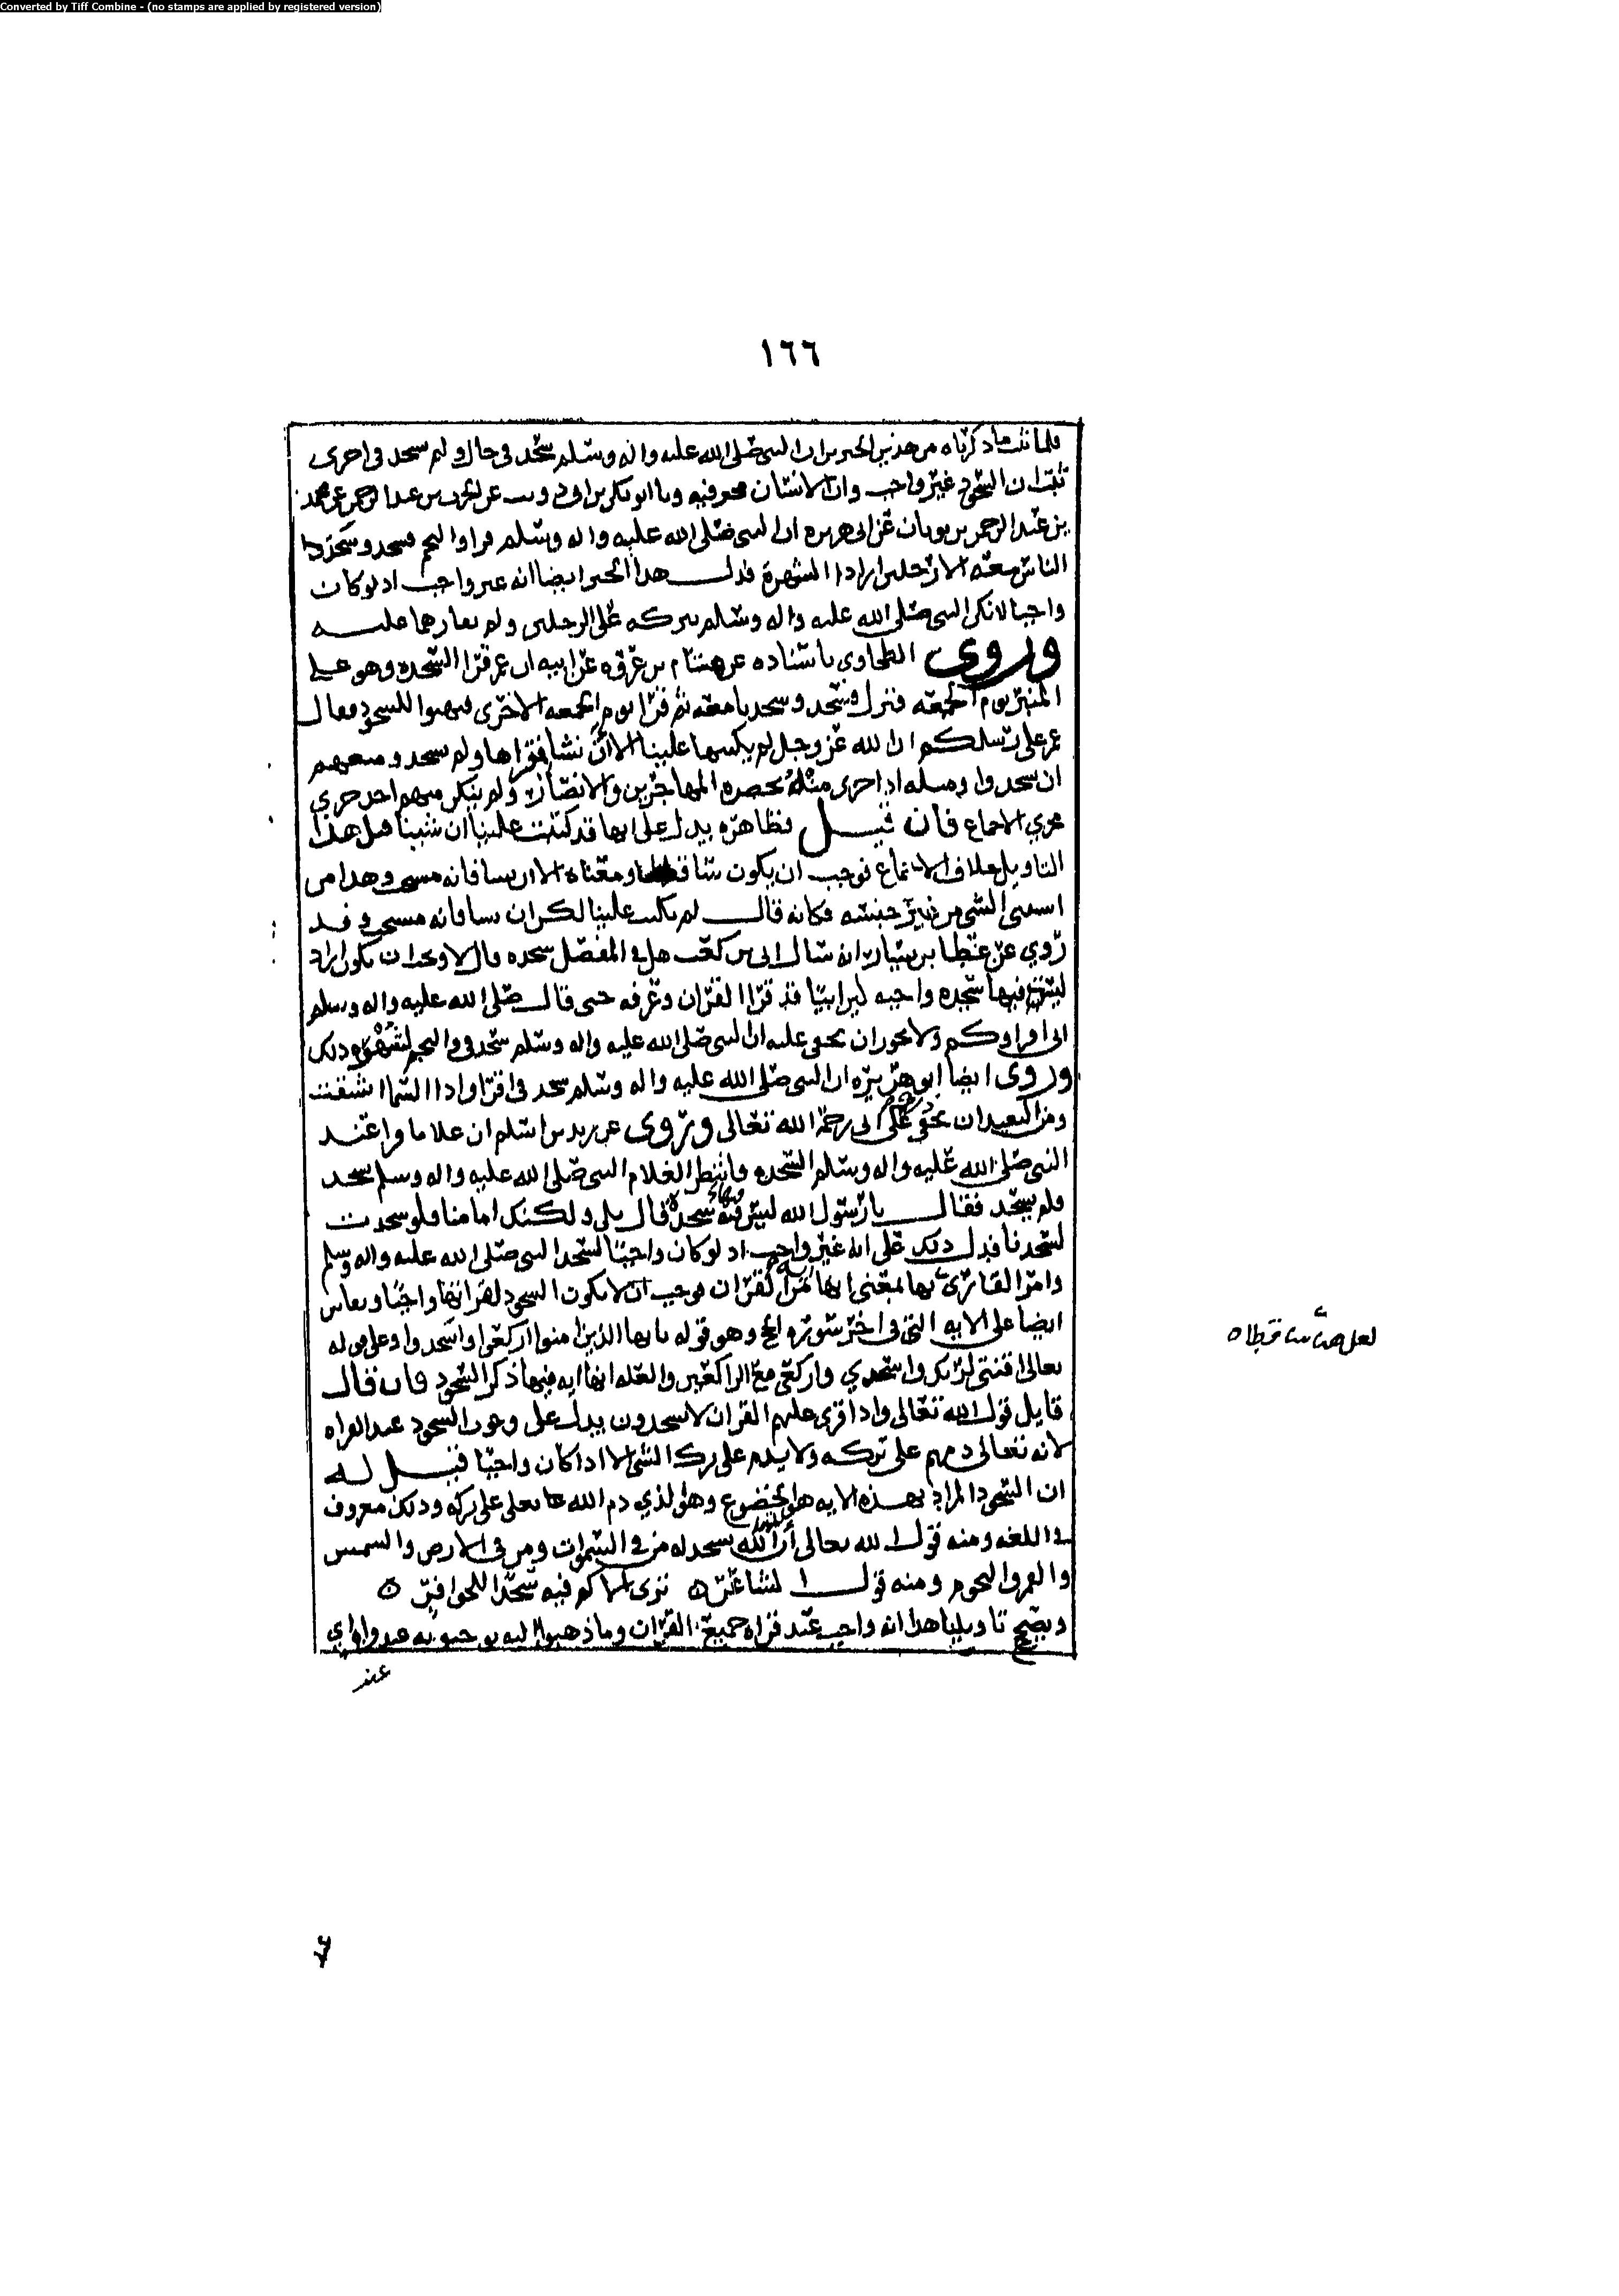 Converted by Tiff Combine - (no stamps are applied by registered version)
١٦٦
فلما ثبت ما ذكرناه من هذين الخبرين ان النبي صلى الله عليه واله وسلم سجد في حال ولم يسجد في اخرى
ثبت ان السجود غير واجب وان الانسان مخير فيه ونا ابو بكر عن عبد الرحمن عن محمد
بن عبد الرحمن بن ثوبان عن ابي هريرة ان النبي صلى الله عليه واله وسلم قرا والنجم فسجد وسجد
الناس معه الا رجلين ارادا الشهرة فدل هذا الخبر ايضا انه غير واجب اذ لو كان
واجبا لانكر النبي صلى الله عليه واله وسلم تركه على الرجلين ولم عليه
وروى الطحاوي باسناده عن هشام بن عروة عن ابيه ان عمر قرا السجدة وهو على
المنبر يوم الجمعه فنزل فسجد وسجدنا معه ثم قرا يوم الجمعه الاخرى فتهيوا للسجود فقال
عمر على رسلكم ان الله عز وجل لم يكتبها علينا الا ان نشا فقراها ولم يسجد ومنعهم
ان يسجدوا ومسله اذا جرى مثله بحضرة المهاجرين والانصار ولم ينكر منهم احد جرى
مجرى الاجماع فان قيل فظاهره يدل على انها قد كتبت علينا ان شينا قيل هذا
التاويل خلاف الاجماع فوجب ان يكون ساقطا ومعناه الا ان نشا فانه مستحب وهذا من
استثنى الشي من غير جنسه فكانه قال لم يكتب علينا لكن ان نشا فانه مستحب وقد
روي عن عطا بن يسار انه سال ابي بن كعب هل في المفصل سجده قال لا ويجوز ان يكون اراد
ليس فيها سجده واجبه لان ابيا قد قرا القران وعرفه حتى قال صلى الله عليه واله وسلم
ابي اقراوكم ولا يجوز ان يخفى عليه ان النبي صلى الله عليه واله وسلم سجد في والنجم لشهرة ذلك
وروى ايضا ابو هريره ان النبي صلى الله عليه واله وسلم سجد في اقرا واذا السما انشقت
ومن البعيد ان يخفى على ابي رحمة الله تعالى وروى عن زيد بن اسلم ان غلاما قرا عند
النبي صلى الله عليه واله وسلم السجده فانتظر الغلام النبي صلى الله عليه واله وسلم يسجد
فلم يسجد فقال يا رسول الله ليس فيها سجدة قال بلى ولكنك امامنا فلو سجدت
لسجدنا فدل ذلك على انه غير واجب اذ لو كان واجبا لسجد النبي صلى الله عليه واله وسلم
وامر القارئ بها بمعنى انها من القران فوجب ان لا يكون السجود لقراتها واجبا وبقاس
ايضا على الايه التي في اخر سورة الحج وهو قوله يا ايها الذين امنوا اركعوا واسجدوا وعلى قوله
تعالى اقنتي لربك واسجدي واركعي مع الراكعين والعله انها ايه فيها ذكر السجود فان قال
قايل قول الله تعالى واذا قرئ عليهم القران لا يسجدون يدل على وجوب السجود عند القراه
لانه تعالى ذمهم على تركه ولا يذم على ترك الشي الا اذا كان واجبا قيل له
ان السجود المراد بهذه الايه هو الخضوع وهو الذي ذم الله تعالى على تركه وذلك معروف
في اللغه ومنه قول الله تعالى ألم تر أن الله يسجد له من في السموات ومن في الارض والشمس
والقمر والنجوم ومنه قول الشاعر ترى الاكم فيه سجدا للحوافر
ويصحح تاويلنا هذا انه واجب عند قراة جميع القران وما ذهبوا اليه
عند
لعل ساقطا